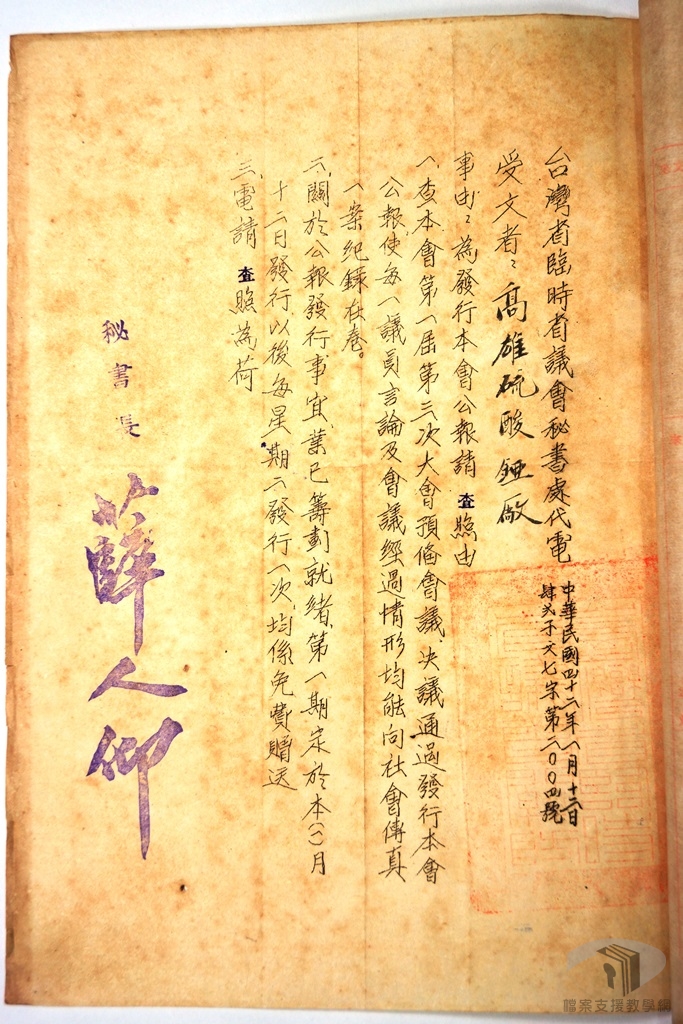 台灣省臨時省議會秘書處代電
中華民國四十二年一月十二日
肆弍子文七宋第二〇〇四號
受文者：高雄硫酸錏廠
事由：為發行本會公報請 查照由
一、查本會第一屆第三次大會預備會議、決議通過發行本會
公報、使每一議員言論及會議經過情形均能向社會傳真
一案紀錄在卷。
二、關於公報發行事宜、業已籌劃就緒、第一期定於本(一)月
十二日發行、以後每星期二發行一次、均係免費贈送
三、電請 查照為荷
秘書長 薛人仰
檔案支援教學網